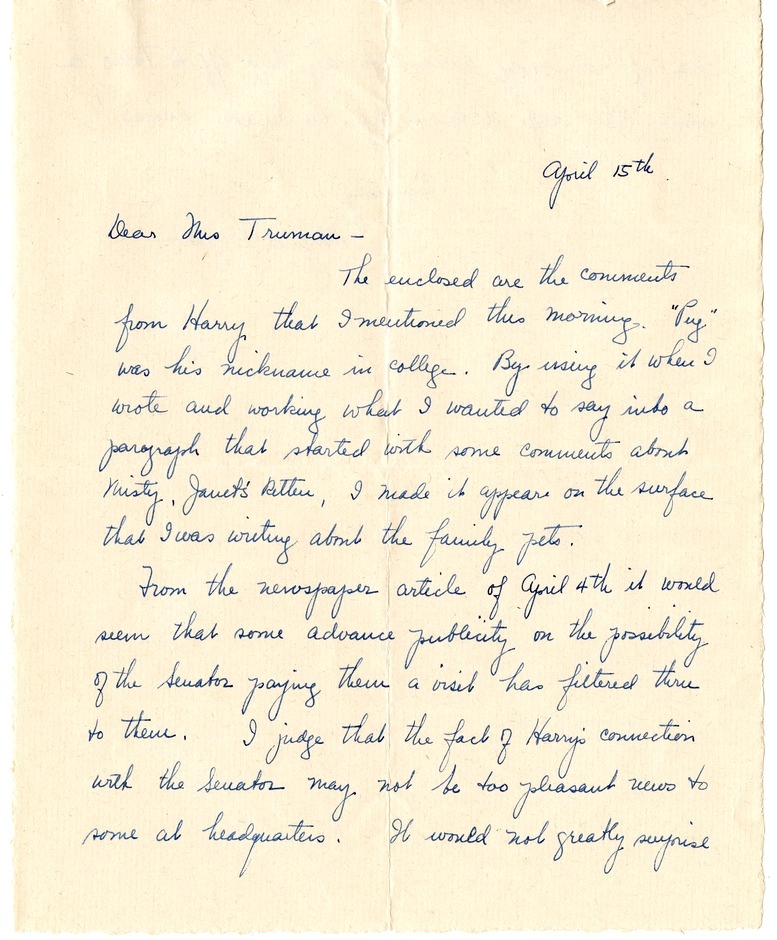 April 15th.
Dear Mrs Truman —
The enclosed are the comments
from Harry, that I mentioned this morning. "Pug"
was his nickname in college. By using it when I
wrote and working what I wanted to say into a
paragraph that started with some comments about
Misty, Janet's kitten, I made it appear on the surface
that I was writing about the family pets.
From the newspaper article of April 4th it would
seem that some advance publicity on the possibility
of the Senator paying them a visit has filtered thru
to them. I judge that the fact of Harry's connection
with the Senator may not be too pleasant news to
some at headquarters. It would not greatly surprise